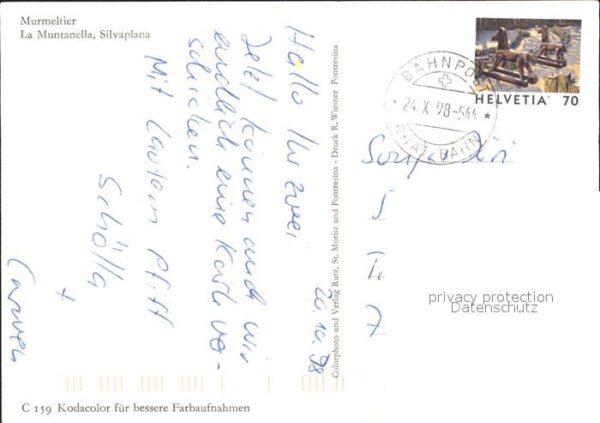 Murmeltier
La Muntanella, Silvaplana
20.10.98
Hallo Ihr zwei
Jetzt können auch wir
endlich eine Karte ver-
schicken.
Mit lautem Pfiff
Schölla
+
Carmen
Colorphoto und Verlag Rutz, St. Moritz und Pontresina - Druck R. Wiesner Pontresina
BAHNPOST
24.X.98-5
RHÄT. BAHN
HELVETIA 70
privacy protection
Datenschutz
C 159 Kodacolor für bessere Farbaufnahmen